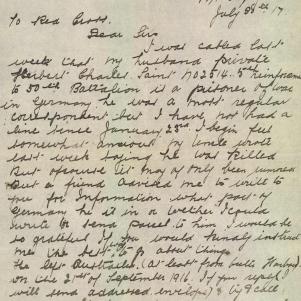 July 28th 17
To Red Cross.
Dear Sir
I was called last
week that my husband private
Herbert Charles Saint No 2514 5th Reinforcements
to 50th Battalion is a prisoner of war
in Germany he was a most regular
correspondent but I have not had a
line since January 28th I begin feel
somewhat anxious by Uncle wrote
last week saying he was killed
But of course it may of only been rumour
But a friend advised me to write to
you for Information what part of
Germany he it in or wether I could
write or send parcel to him I would be
so grateful if you would kindly instruct
me the best to do about things
He left Australia (At least from
on the 21st of September 1916. If you reply I
will send addressed envelope